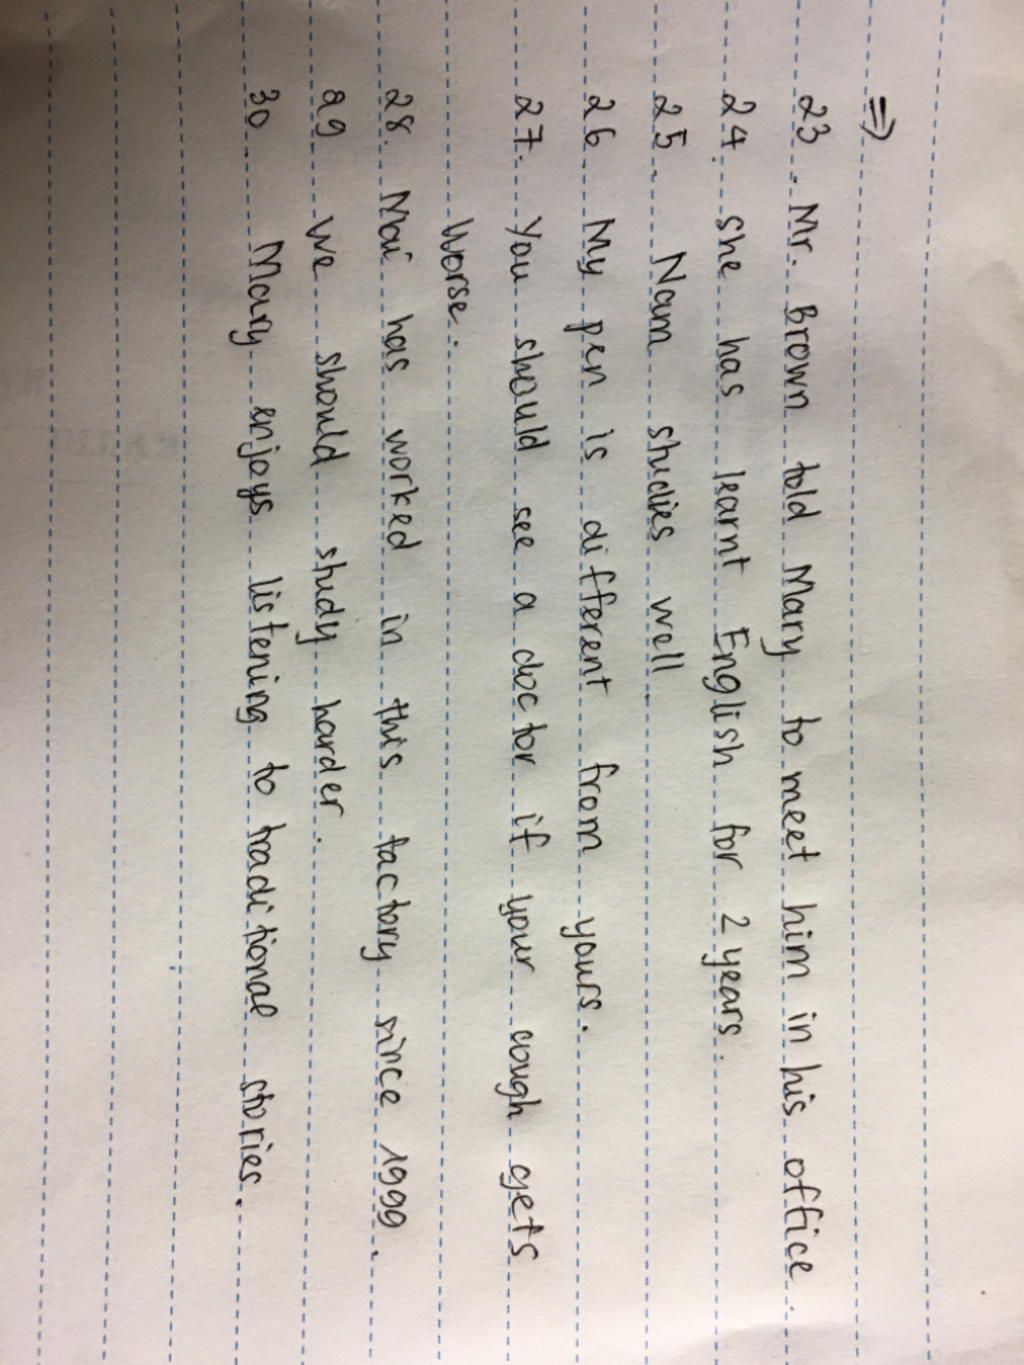 ⇒
23. Mr. Brown told Mary to meet him in his office.
24. she has learnt English for 2 years.
25. Nam studies well.
26 My pen is different from yours.
27. You should see a doctor if your cough gets
worse.
28. Mai has worked in this factory since 1999.
29 We should study harder.
30. Mary enjoys listening to traditional stories.